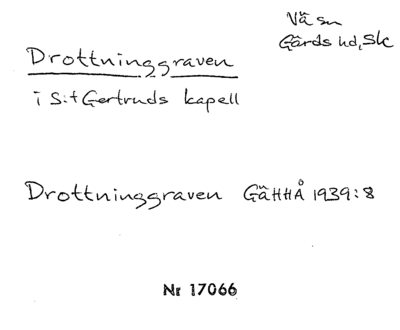 Vä sn
Gärds hd, Sk
Drottninggraven
i S:t Gertruds kapell
Drottninggraven GäHHÅ 1939:8
Nr 17066